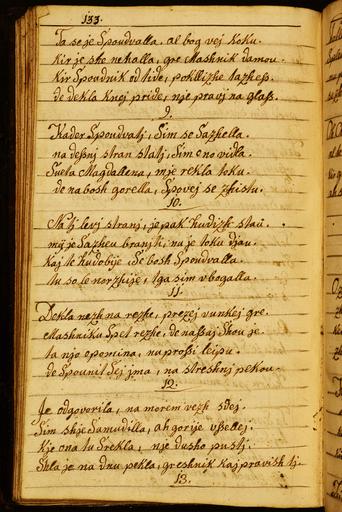 133.
Ta se je Spoudvalla, al bog vej koku.
kir je ske nehalla, gre Mashnik damou.
kir Spoudnik od hide, poklizhe
de dekla knej pride, nje pravj na glaß.
9.
Kader Spoudvatj, Sim se Sazhella.
na deßnj stran statj, Sim eno vidla.
Sveta Magdallena, mje rekla toku.
de na bosh gorella, Spovej se zhistu.
10.
Na tj levj stranj, je pak hudizh stau.
mije Sazheu branjti, nu je toku djau.
kaj te hudobije, Se bosh Spoudvalla.
tu so le norzhije, tga sim vbogalla.
11.
Dekla nezh na rezhe, prezej vunkej gre.
Mashniku Spet rezhe, de naßaj Shou je.
ta njo opomina, nu proßi lejpu.
de Spounit Sej jma, na streshnj pekou.
12.
Je odgovorila, na morem vezh sdej.
Sim shje Samudilla, ah gorije vßellej.
kje ona tu Srekla, nje dusho pustj.
Shla je na dnu pekla, greshnik kaj pravish tj.
13.